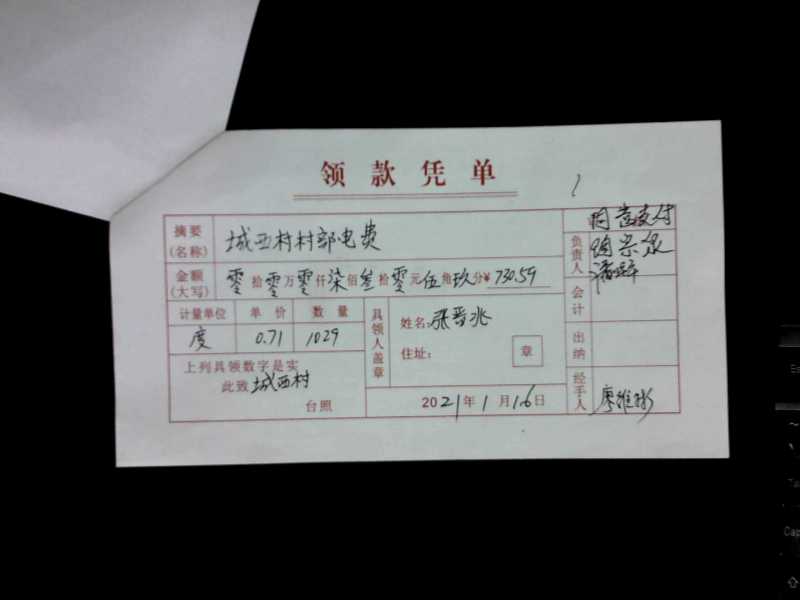 领款凭单
摘要
(名称)
城西村村部电费
金额
(大写)
零拾零万零仟柒佰叁拾零元伍角玖分¥730.59
计量单位 单价 数量
度 0.71 1029
上列具领数字是实
此致 城西村
台照
具领人盖章
姓名:张晋兆
住址:
章
2021年1月16日
同意支付
负责人
会计
出纳
经手人
廖维彬